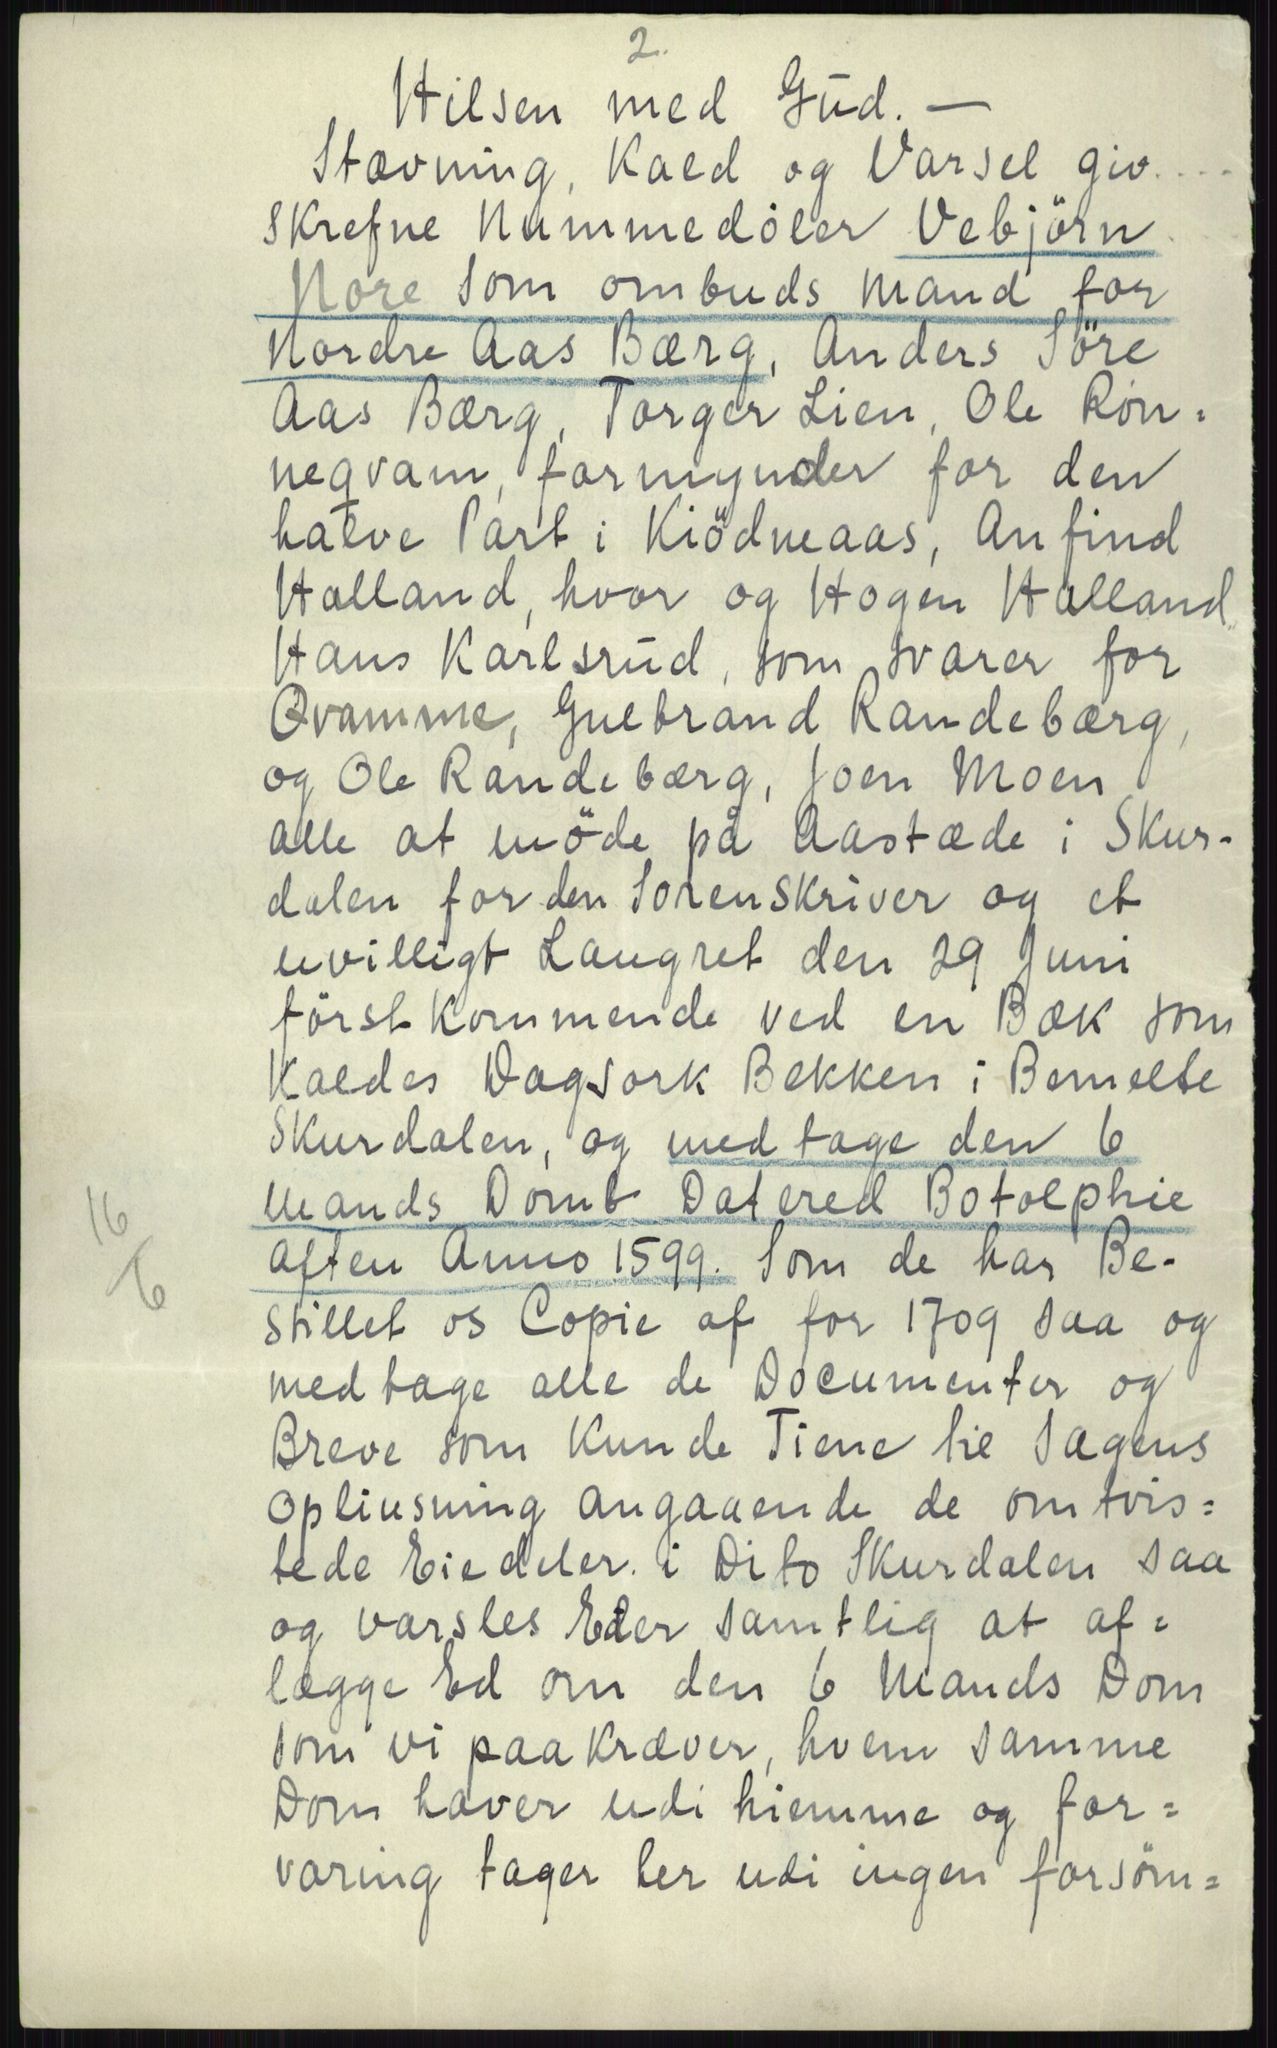 2.
Hilsen med Gūd. —
Stævning, Kald og Varsel giv....
skrefne Nummedöler Vebjörn
Nore som ombuds mand for
Nordre Aas Bærg, Anders Söre
Aas Bærg, Torger Lien, Ole Rön=
neqvam, formynder for den
halve Part i Kiödneaas, Anfind
Halland, hvor og Hogen Halland
Hans Karlsrūd, som svarer for
Qvamme, Gulbrand Randebærg,
og Ole Randebærg, Joen Moen
alle at möde på Aastæde i Skur-
dalen for den Sorenskriver og et
uvilligt Laugret den 29 Juni
först kommende ved en Bæk som
Kaldes Dagsork Bekken i Bemelte
Skurdalen, og medtage den 6
Mands Domb Datered Botolphie
aften Anno 1599. Som de har Be-
stillet os Copie af for 1709 saa og
medtage alle de Documenter og
Breve som Kunde Tiene til Sagens
opliusning angaaende de omtvis=
tede Eiedeler i Dito Skurdalen saa
og varsles Eder samtlig at af=
lægge Ed om den 6 Mands Dom
som vi paakræver, hvem samme
Dom haver udi hiemme og for=
varing tager her udi ingen forsöm=
16
/6